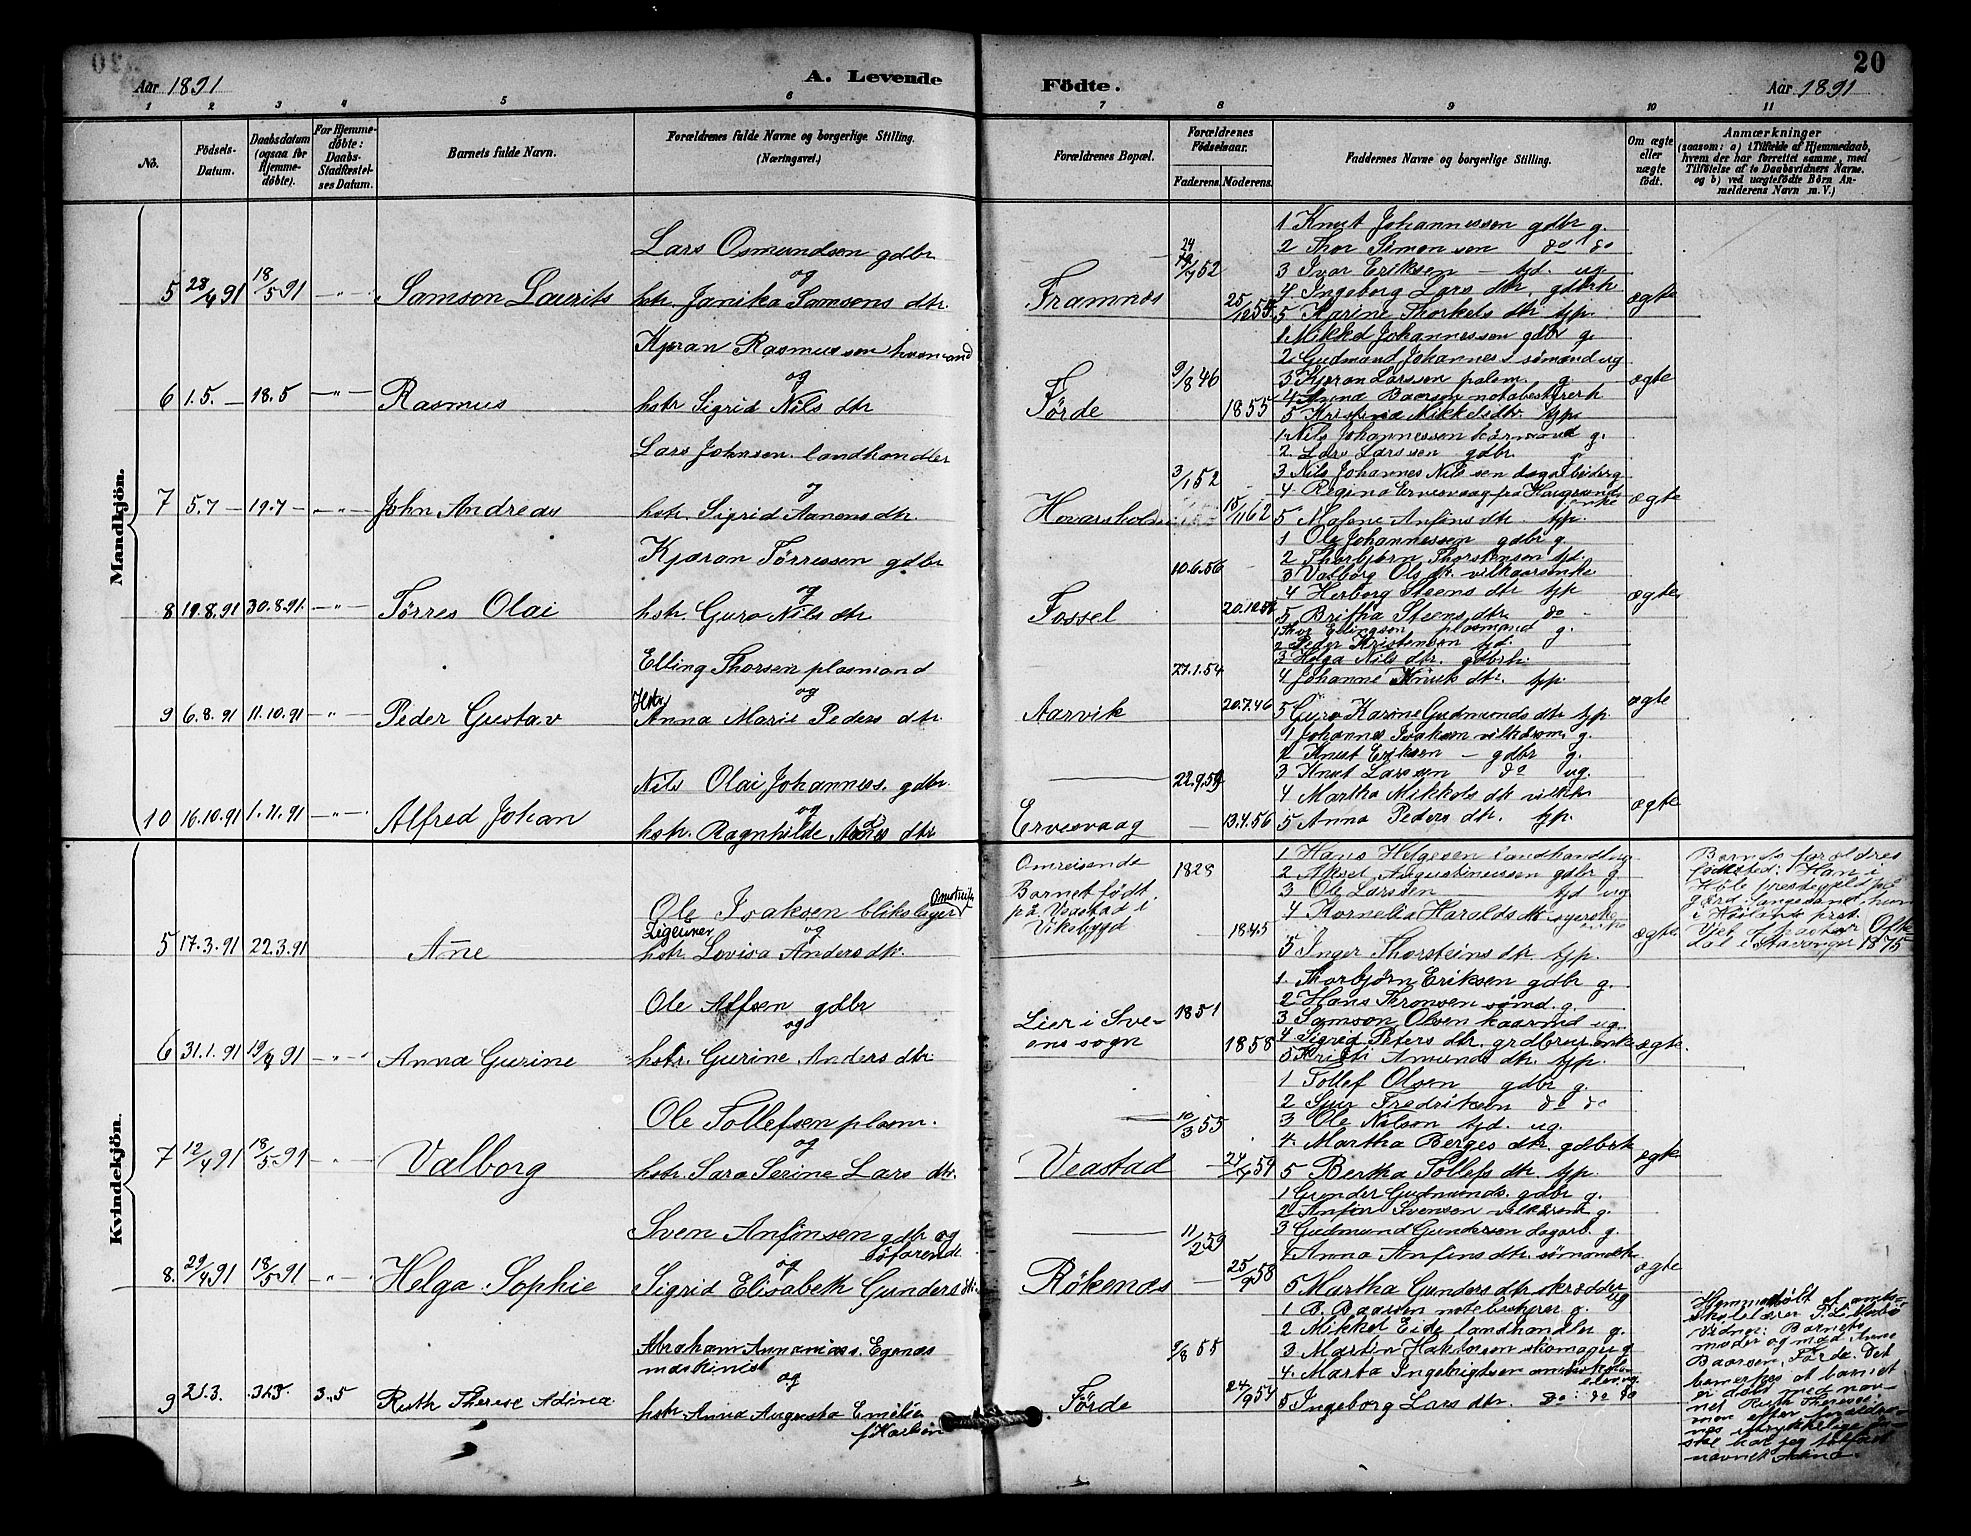 20
Aar 1891
A. Levende
Födte.
Aar 1891
1 2 3 4 5 6 7 8 9 10 11
No.
Födsels-Datum.
Daabsdatum (ogsaa for Hjemme-döbte).
For Hjemme-döbte: Daabs-Stadfæstel-ses Datum.
Barnets fulde Navn.
Forældrenes fulde Navne og borgerlige Stilling.
(Næringsvei.)
Forældrenes Bopæl.
Forældrenes Födselsaar.
Faderens. Moderens.
Faddernes Navne og borgerlige Stilling.
Om ægte eller uægte födt.
Anmærkninger
(saasom: a) i Tilfælde af Hjemmedaab,
hvem der har forrettet samme, med
Tilföielse af to Daabsvidners Navne.
og b) ved uægtefödte Börn An-
melderens Navn m. V.)
Mandkjön.
5 28/4 91 18/5 91 - " - Samson Laurits
Lars Osmundsen gdbr
og
hstr. Janika Samsons dtr.
Framnæs
52
25/12 55
1 Knut Johannessen gdbr g.
2 Thor Simonsen do do
3 Ivar Eriksen - tjd. ug.
4 Ingeborg Lars dtr. gdbrh
5 Karine Thorkels dtr tjp.
ægte
6 1.5. - 18.5 - " - Rasmus
Kjøran Rasmussen husmand
og
hstr Sigrid Nils dtr
Førde
9/8 46
1855
1 Mikkel Johannessen gdbr g.
2 Gudmund Johannes s sømand ug
3 Kjøran Larssen palsm. g
4 Anna Baarsen notabestyrerh
5 Kristina Mikkelsdtr. tjp.
ægte
7 5.7 - 19.7 - - " - John Andreas
Lars Johnsen landhandler
og
hstr. Sigrid Aanensdtr.
Hovarsholm
3/1 52
15/11 62
1 Nils Johannessen kårmand g.
2 Lars Larssen gdbr. "
3 Nils Johannes Nilssen dagarbeider g
4 Regina Ervesvaag fra Haugesund enke
5 Malene Anfins dtr. tjp.
ægte
8 19.8.91 30.8.91. - " - Tørres Olai
Kjøran Tørressen gdbr
og
hstr. Guro Nils dtr
Fossel
10.6.56
1 Ole Johannessen gdbr g
2 Thorbjørn Thorstensen tjd.
3 Valborg Ols dtr. vilkaarsenke
4 Herborg Steens dtr tjp
5 Britha Steens dtr do -
ægte
9 6.8.91 11.10.91 - " - Peder Gustav
Elling Thorsen plasmand
og
Hstr Anna Marie Peders dtr.
Aarvik
27.1.54
20.7.46
1 Thor Ellingsen plasmand g.
2 Peder Kristensen tjd.
3 Helga Nils dtr. gdbrh.
4 Johanne Knuts dtr. tjp.
5 Guro Karine Gudmunds dtr tjp.
ægte
10 16.10.91 1.11.91 - " - Alfred Johan
Nils Olai Johannes s. gdbr
og
hstr. Ragnhilde dtr
Ervesvaag
22.9.59
13.4.56
1 Johannes Isaksen vilkårsm. g.
2 Knut Eriksen - gdbr g.
3 Knut Larssen do ug.
4 Martha Mikkels dt vilkh
5 Anna Peders dtr. tjp.
ægte
Kvindekjön.
5 17.3.91 22.3.91 Ane
Ole Isaksen blikslager Omstreif.
Zigeuner og
hstr Lovisa Andersdtr.
Omreisende
Barnet født
på Veastad i
Viksbygd
1828
1845
1 Hans Helgesen landhandl ug
2 Aksel Augustinussen gdbr g
3 Ole Larssen tjd ug
4 Kornelia Haralds dtr syerske
5 Inger Thorsteins dtr tjp.
ægte
Barnets forældres
fødested: Han i
Hole præstegjeld på
Gjerd. Langesand, hun
i Høiland prst.
Viet af pastor Ofte-
dal i Stavanger 1875
6 31.1.91 19/4 91 - " - Anna Gurine
Ole Alfsen gdbr
og
hstr. Gurine Anders dtr
Lier i Sve-
ens sogn
1851
1858
1. Thorbjørn Eriksen gdbr g.
2 Hans Thronsen sømd. g.
3 Samson Olsen kaarmd ug.
4 Sigrid Peters dtr. grdbrug. enke
5 Kristi Amunds dtr. tjp.
ægte.
7 12/4 91 18/5 91 - " - Valborg
Ole Tollefsen plasm.
og
hstr. Sara Serine Lars dtr.
Veastad
10/3 55
59
1 Tollef Olsen gdbr g.
2 Sjur Fredriksen do do
3 Ole Nilsen tjd. ug.
4. Martha Berges dtr. gdbrh
5 Bertha Tollefs dtr. tjp.
ægte
8. 29/4 91 18/5 91 - " - Helga Sophie
Sven Anfinsen gdbr og
søfarende
og
Sigrid Elisabeth Gunders dtr.
Rökenæs
11/2 59
25/9 58
1 Gunder Gudmunds. gdbr g.
2 Anfin Svensen vilkårsm g.
3 Gudmund Gundersen dagarb. g.
4 Anna Anfins dtr. sømandsh
5 Martha Gunders dtr skrædder ug
ægte
9 21.3. 31.5. 3.5 Ruth Therese Adina
Abraham Annanias s. Egenæs
maskinist
og
hstr. Anna Augusta Emilie
Førde
9/8 55
24/9 54
1 B. Baarsen notebestyrer g.
2 Mikkel Eide landhandler g.
3 Martin Haktorsen skomager g
4. Marta Ingebrigtsen
5 Ingeborg Lars dtr. do do do
Hjemmedøbt af amts-
skolelærer
Vidner: Barnets
moder og mad. Anne
Baarsen, Førde. Det
bemærkes at barnet
er døbt med nav-
net Ruth Therese,
men efter forældre-
nes udtrykkelige øn-
ske har jeg tilføiet
navnet Adina.